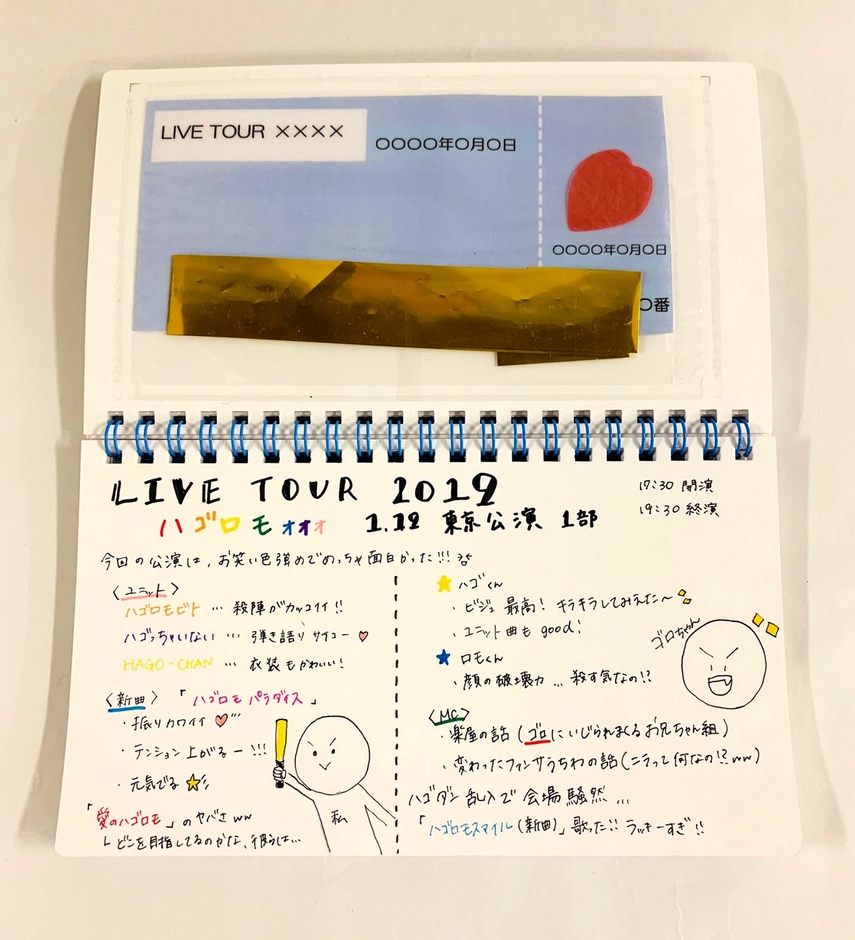 LIVE TOUR ××××
○○○○年○月○日
○○○○年○月○日
○番
LIVE TOUR 2019
17:30 開演
19:30 終演
ハゴロモォォォ 1.12 東京公演 1部
今回の公演は、お笑い色強めでめっちゃ面白かった!!!
〈ユニット〉
ハゴロモビト … 殺陣がカッコイイ!!
ハゴっちゃいない … 弾き語りサイコー♡
HAGO-CHAN … 衣装もかわいい!
〈新曲〉「ハゴロモパラダイス」
・振りカワイイ♡
・テンション上がるー!!!
・元気でる☆
「愛のハゴロモ」のヤバさww
└ どこを目指してるのかな、彼らは…
私
★ハゴくん
・ビジュ最高! キラキラしてみえた〜
・ユニット曲も good!
★ロモくん
・顔の破壊力…殺す気なの!?
ゴロちゃん
〈MC〉
・楽屋の話(ゴロにいじられまくるお兄ちゃん組)
・変わったファンサうちわの話(ニラって何なの!?ww)
ハゴダン乱入で会場騒然…
「ハゴロモスマイル(新曲)」歌った!! ラッキーすぎ!!